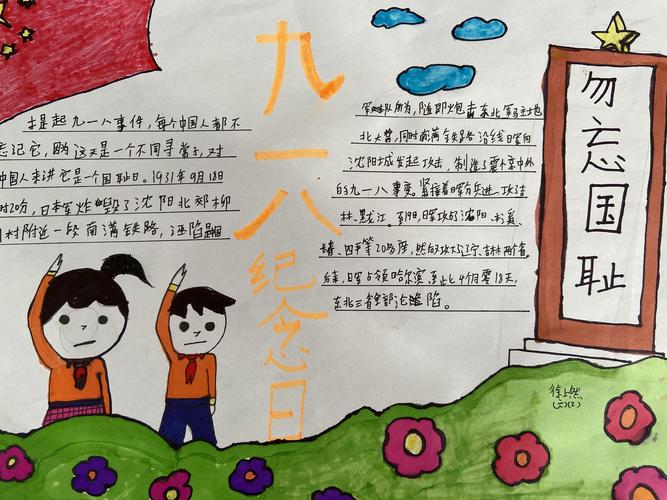 九一八纪念日
提起九一八事件，每个中国人都不
忘记它，因为这天是一个不同寻常，对
中国人来讲它是一个国耻日。1931年9月18日
时20分，日本军炸毁了沈阳北郊柳
村附近一段南满铁路，诬陷
军队所为，随即炮击东北军驻地
北大营，同时南满铁路沿线日军向
沈阳城发起攻击，制造了震惊中外
的九一八事变。紧接着日军兵进，攻
林、黑龙江。至19日，日军攻占沈阳、长春、
四平等20多座，然后攻占辽宁、吉林两省。
后来，日军占领哈尔滨。至此4个月零18天，
东北三省全部沦陷。
勿忘国耻
徐上然
六(2)